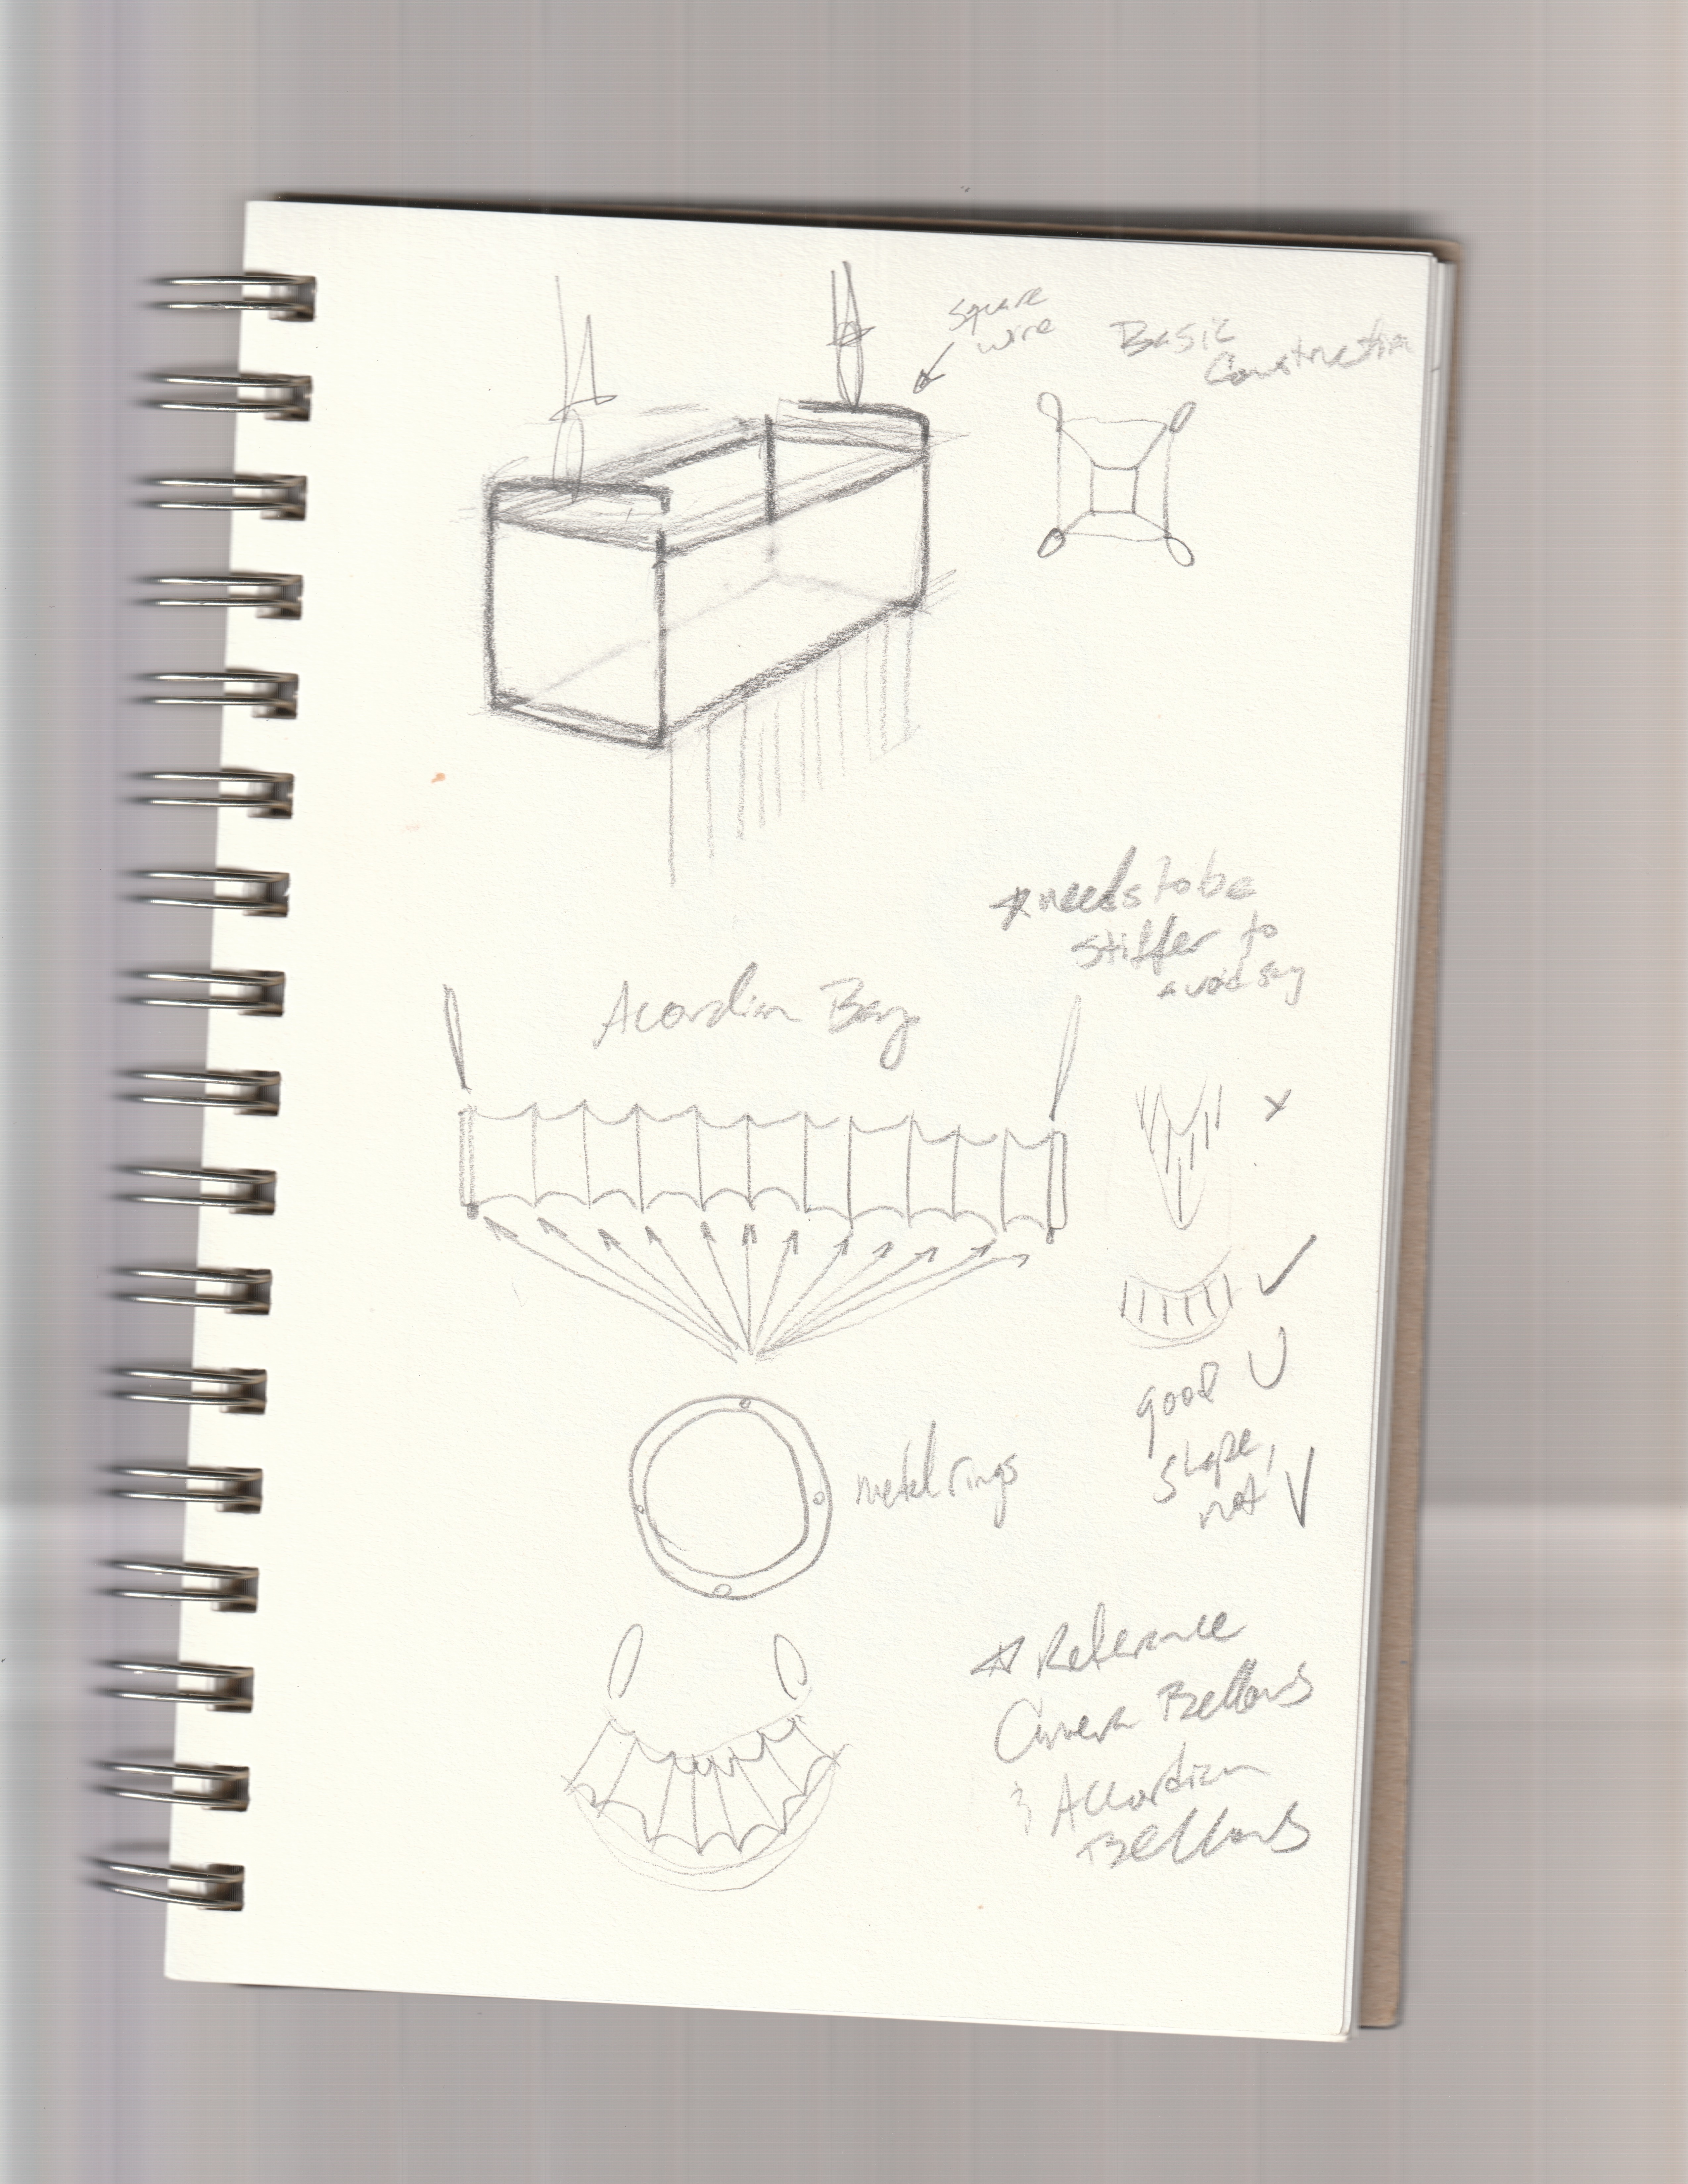 Square
wire
Basic
Construction
*needs to be
stiffer to
avoid sag
Acordian Bag
x
✓
good U
shape,
not V
metal rings
*Reference
Camera Bellows
& Accordian
Bellows